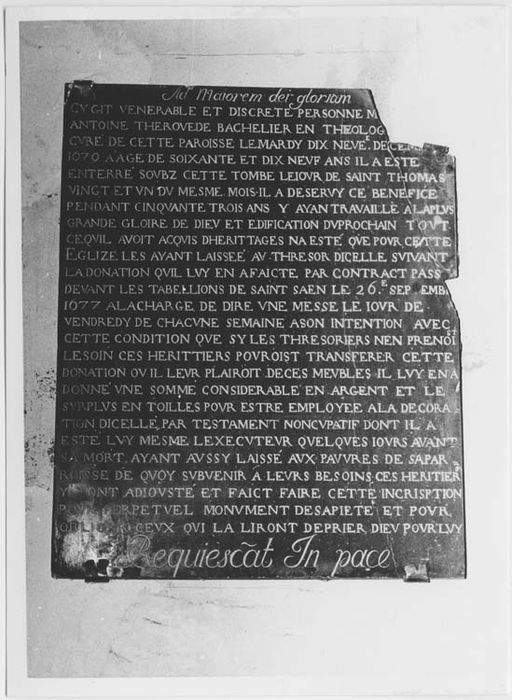 Ad Maiorem dei gloriam
CY GIT VENERABLE ET DISCRETE PERSONNE M
ANTOINE THEROVEDE BACHELIER EN THEOLOG
CVRÉ DE CETTE PAROISSE LE MARDY DIX NEVE DECEM
AAGE DE SOIXANTE ET DIX NEVF ANS IL A ESTE
ENTERRÉ SOVBZ CETTE TOMBE LE IOVR DE SAINT THOMAS
VINGT ET VN DV MESME MOIS IL A DESERVY CE BENEFICE
PENDANT CINQVANTE TROIS ANS Y AYAN TRAVAILLÉ A LA PLVS
GRANDE GLOIRE DE DIEV ET EDIFICATION DVPROCHAIN TOVT
CEQVIL AVOIT ACQVIS DHERITTAGES NA ESTÉ QVE POVR CETTE
EGLIZE LES AYANT LAISSEÉ AV THRESOR DICELLE SVIVANT
LA DONATION QVIL LVY EN A FAICTE PAR CONTRACT PASS
DEVANT LES TABELLIONS DE SAINT SAEN LE 26.E SEP EMB
1677 ALACHARGE DE DIRE VNE MESSE LE IOVR DE
VENDREDY DE CHACVNE SEMAINE ASON INTENTION AVEC
CETTE CONDITION QVE SY LES THRESORIERS NEN PRENOIET
LESOIN CES HERITTIERS POVROIST TRANSFERER CETTE
DONATION OV IL LEVR PLAIROIT DECES MEVBLES IL LVY EN A
DONNÉ VNE SOMME CONSIDERABLE EN ARGENT ET LE
SVRPLVS EN TOILLES POVR ESTRE EMPLOYEE ALA DECORA
TION DICELLE PAR TESTAMENT NONCVPATIF DONT IL A
ESTE LVY MESME LEXECVTEVR QVELQVES IOVRS AVANT
SA MORT, AYANT AVSSY LAISSÉ AVX PAVVRES DE SAPAR
ROISSE DE QVOY SVBVENIR Á LEVRS BESOINS; CES HERITIER
Y ONT ADIOVSTÉ ET FAICT FAIRE CETTE INCRISPTION
PERPETVEL MONVMENT DESAPIETÉ ET POVR
CEVX QVI LA LIRONT DEPRIER DIEV POVR LVY
Requiescãt In pace